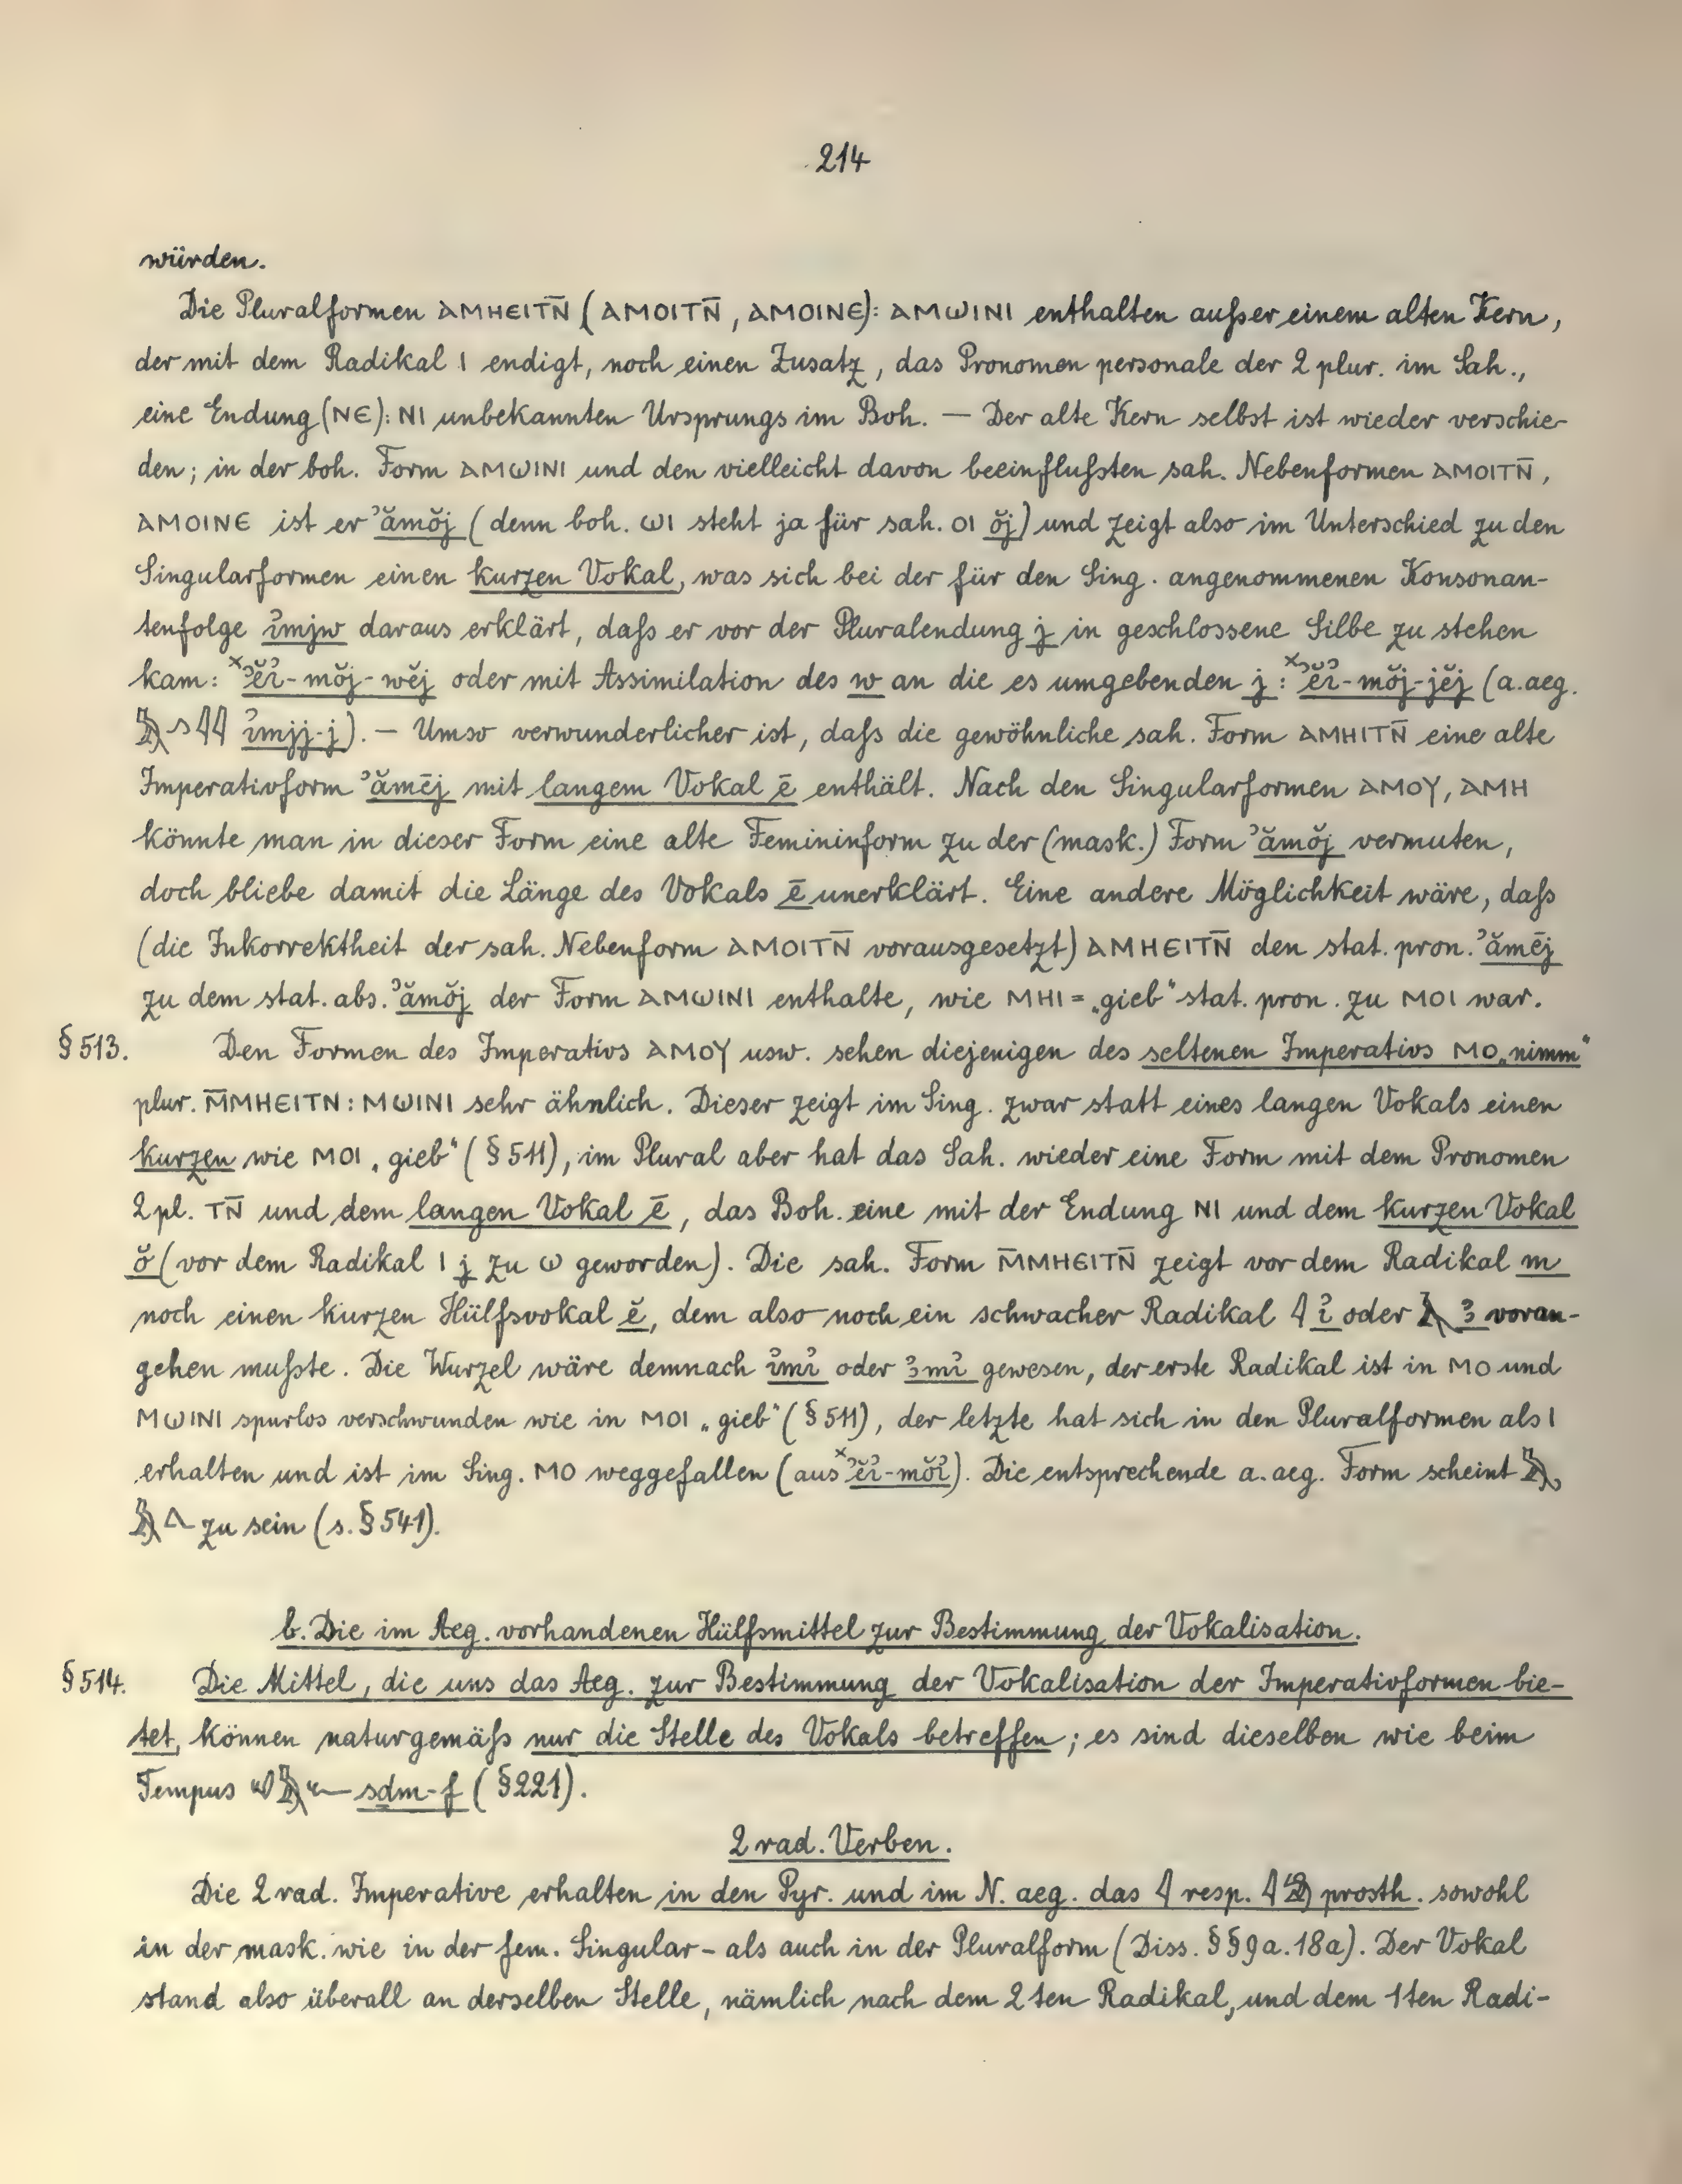 214
würden.
Die Pluralformen ⲁⲙⲏⲉⲓⲧⲛ̄ (ⲁⲙⲟⲓⲧⲛ̄, ⲁⲙⲟⲓⲛⲉ): ⲁⲙⲱⲓⲛⲓ enthalten außer einem alten Kern,
der mit dem Radikal ⲓ endigt, noch einen Zusatz, das Pronomen personale der 2 plur. im Sah.,
eine Endung (ⲛⲉ): ⲛⲓ unbekannten Ursprungs im Boh. — Der alte Kern selbst ist wieder verschie-
den; in der boh. Form ⲁⲙⲱⲓⲛⲓ und den vielleicht davon beeinflußten sah. Nebenformen ⲁⲙⲟⲓⲧⲛ̄,
ⲁⲙⲟⲓⲛⲉ ist er ʾămŏj (denn boh. ⲱⲓ steht ja für sah. ⲟⲓ ŏj) und zeigt also im Unterschied zu den
Singularformen einen kurzen Vokal, was sich bei der für den Sing. angenommenen Konsonan-
tenfolge ỉmjw daraus erklärt, daß er vor der Pluralendung j in geschlossene Silbe zu stehen
kam: ˣʾĕỉ-mŏj-wĕj oder mit Assimilation des w an die es umgebenden j: ˣʾĕỉ-mŏj-jĕj (a.aeg.
𓅓𓂻𓇋𓇋 ỉmjj-j). — Umso verwunderlicher ist, daß die gewöhnliche sah. Form ⲁⲙⲏⲓⲧⲛ̄ eine alte
Imperativform ʾămēj mit langem Vokal ē enthält. Nach den Singularformen ⲁⲙⲟⲩ, ⲁⲙⲏ
könnte man in dieser Form eine alte Femininform zu der (mask.) Form ʾămŏj vermuten,
doch bliebe damit die Länge des Vokals ē unerklärt. Eine andere Möglichkeit wäre, daß
(die Inkorrektheit der sah. Nebenform ⲁⲙⲟⲓⲧⲛ̄ vorausgesetzt) ⲁⲙⲏⲉⲓⲧⲛ̄ den stat. pron. ʾămēj
zu dem stat. abs. ʾămŏj der Form ⲁⲙⲱⲓⲛⲓ enthalte, wie ⲙⲏⲓ= „gieb“ stat. pron. zu ⲙⲟⲓ war.
§ 513. Den Formen des Imperativs ⲁⲙⲟⲩ usw. sehen diejenigen des seltenen Imperativs ⲙⲟ „nimm“
plur. ⲙ̄ⲙⲏⲉⲓⲧⲛ: ⲙⲱⲓⲛⲓ sehr ähnlich. Dieser zeigt im Sing. zwar statt eines langen Vokals einen
kurzen wie ⲙⲟⲓ „gieb“ (§ 511), im Plural aber hat das Sah. wieder eine Form mit dem Pronomen
2 pl. ⲧⲛ̄ und dem langen Vokal ē, das Boh. eine mit der Endung ⲛⲓ und dem kurzen Vokal
ŏ (vor dem Radikal ⲓ j zu ⲱ geworden). Die sah. Form ⲙ̄ⲙⲏⲉⲓⲧⲛ̄ zeigt vor dem Radikal m
noch einen kurzen Hülfsvokal ĕ, dem also noch ein schwacher Radikal 𓇋 ỉ oder 𓄿 ꜣ voran-
gehen mußte. Die Wurzel wäre demnach ỉmỉ oder ꜣmỉ gewesen, der erste Radikal ist in ⲙⲟ und
ⲙⲱⲓⲛⲓ spurlos verschwunden wie in ⲙⲟⲓ „gieb“ (§ 511), der letzte hat sich in den Pluralformen als ⲓ
erhalten und ist im Sing. ⲙⲟ weggefallen (aus ˣʾĕỉ-mŏỉ). Die entsprechende a. aeg. Form scheint 𓅓
𓅓𓂙 zu sein (s. § 541).
b. Die im Aeg. vorhandenen Hülfsmittel zur Bestimmung der Vokalisation.
§ 514. Die Mittel, die uns das Aeg. zur Bestimmung der Vokalisation der Imperativformen bie-
tet, können naturgemäß nur die Stelle des Vokals betreffen; es sind dieselben wie beim
Tempus 𓄔𓅓𓆑 sdm-f (§ 221).
2 rad. Verben.
Die 2 rad. Imperative erhalten in den Pyr. und im N. aeg. das 𓇋 resp. 𓇋𓀁 prosth. sowohl
in der mask. wie in der fem. Singular- als auch in der Pluralform (Diss. §§ 9a. 18a). Der Vokal
stand also überall an derselben Stelle, nämlich nach dem 2ten Radikal, und dem 1ten Radi-